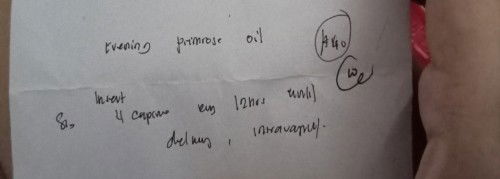 Evening primrose oil #40
Insert
Sig 4 capsule every 12hrs until
delivery, intravaginal.